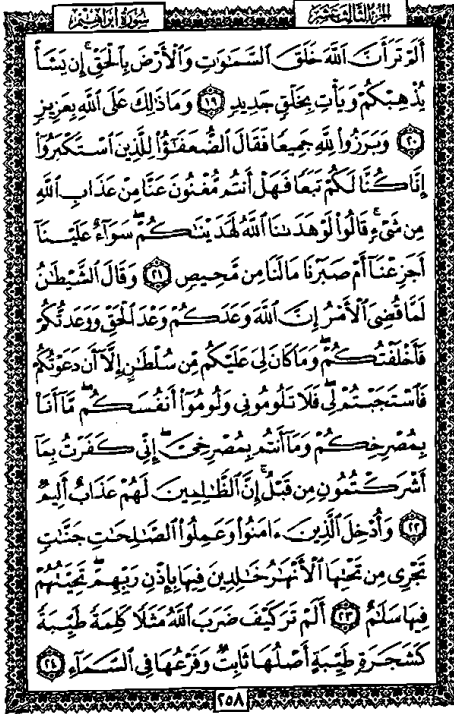 الجزء الثالث عشر سورة إبراهيم
أَلَمْ تَرَ أَنَّ ٱللَّهَ خَلَقَ ٱلسَّمَٰوَٰتِ وَٱلْأَرْضَ بِٱلْحَقِّ ۚ إِن يَشَأْ
يُذْهِبْكُمْ وَيَأْتِ بِخَلْقٍ جَدِيدٍ ١٩ وَمَا ذَٰلِكَ عَلَى ٱللَّهِ بِعَزِيزٍ
٢٠ وَبَرَزُوا۟ لِلَّهِ جَمِيعًا فَقَالَ ٱلضُّعَفَٰٓؤُا۟ لِلَّذِينَ ٱسْتَكْبَرُوٓا۟
إِنَّا كُنَّا لَكُمْ تَبَعًا فَهَلْ أَنتُم مُّغْنُونَ عَنَّا مِنْ عَذَابِ ٱللَّهِ
مِن شَىْءٍ ۚ قَالُوا۟ لَوْ هَدَىٰنَا ٱللَّهُ لَهَدَيْنَٰكُمْ ۖ سَوَآءٌ عَلَيْنَآ
أَجَزِعْنَآ أَمْ صَبَرْنَا مَا لَنَا مِن مَّحِيصٍ ٢١ وَقَالَ ٱلشَّيْطَٰنُ
لَمَّا قُضِىَ ٱلْأَمْرُ إِنَّ ٱللَّهَ وَعَدَكُمْ وَعْدَ ٱلْحَقِّ وَوَعَدتُّكُمْ
فَأَخْلَفْتُكُمْ ۖ وَمَا كَانَ لِىَ عَلَيْكُم مِّن سُلْطَٰنٍ إِلَّآ أَن دَعَوْتُكُمْ
فَٱسْتَجَبْتُمْ لِى ۖ فَلَا تَلُومُونِى وَلُومُوٓا۟ أَنفُسَكُم ۖ مَّآ أَنَا۠
بِمُصْرِخِكُمْ وَمَآ أَنتُم بِمُصْرِخِىَّ ۖ إِنِّى كَفَرْتُ بِمَآ
أَشْرَكْتُمُونِ مِن قَبْلُ ۗ إِنَّ ٱلظَّٰلِمِينَ لَهُمْ عَذَابٌ أَلِيمٌ
٢٢ وَأُدْخِلَ ٱلَّذِينَ ءَامَنُوا۟ وَعَمِلُوا۟ ٱلصَّٰلِحَٰتِ جَنَّٰتٍ
تَجْرِى مِن تَحْتِهَا ٱلْأَنْهَٰرُ خَٰلِدِينَ فِيهَا بِإِذْنِ رَبِّهِمْ ۖ تَحِيَّتُهُمْ
فِيهَا سَلَٰمٌ ٢٣ أَلَمْ تَرَ كَيْفَ ضَرَبَ ٱللَّهُ مَثَلًا كَلِمَةً طَيِّبَةً
كَشَجَرَةٍ طَيِّبَةٍ أَصْلُهَا ثَابِتٌ وَفَرْعُهَا فِى ٱلسَّمَآءِ ٢٤
٢٥٨